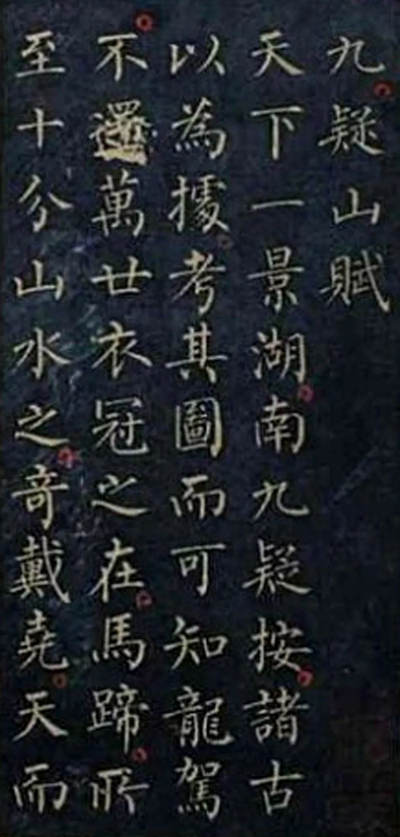 九疑山賦
天下一景湖南九疑按諸古
以為據考其圖而可知龍駕
不還萬廿衣冠之在馬蹄所
至十分山水之竒戴堯天而